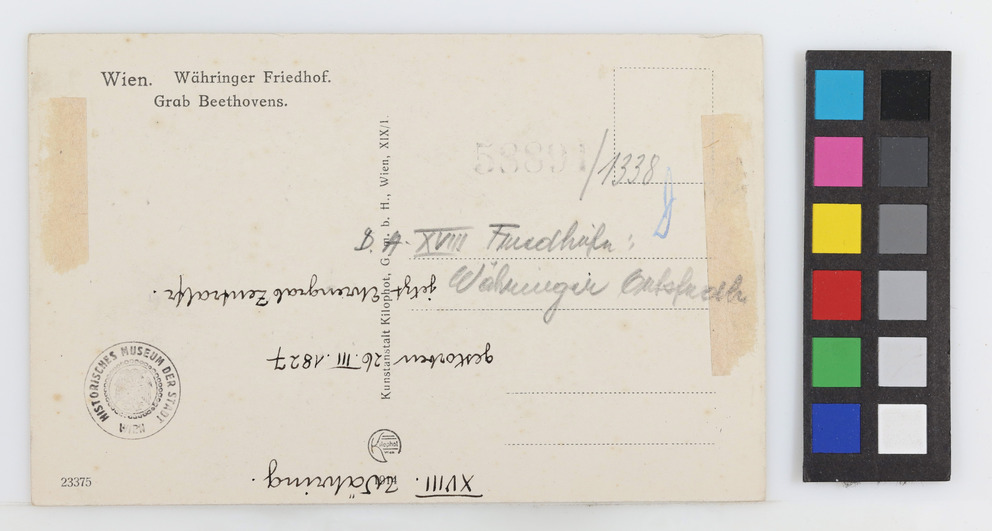 Wien. Währinger Friedhof.
Grab Beethovens.
58891/1338
D. A. XVIII Friedhöfe:
Währinger Ortsfriedh.
Kunstanstalt Kilophot, G. m. b. H., Wien, XIX/1.
XVIII. Währing.
gestorben 26. III. 1827
jetzt Ehrengrab Zentralfr.
HISTORISCHES MUSEUM DER STADT WIEN
Kilophot
1914
23375